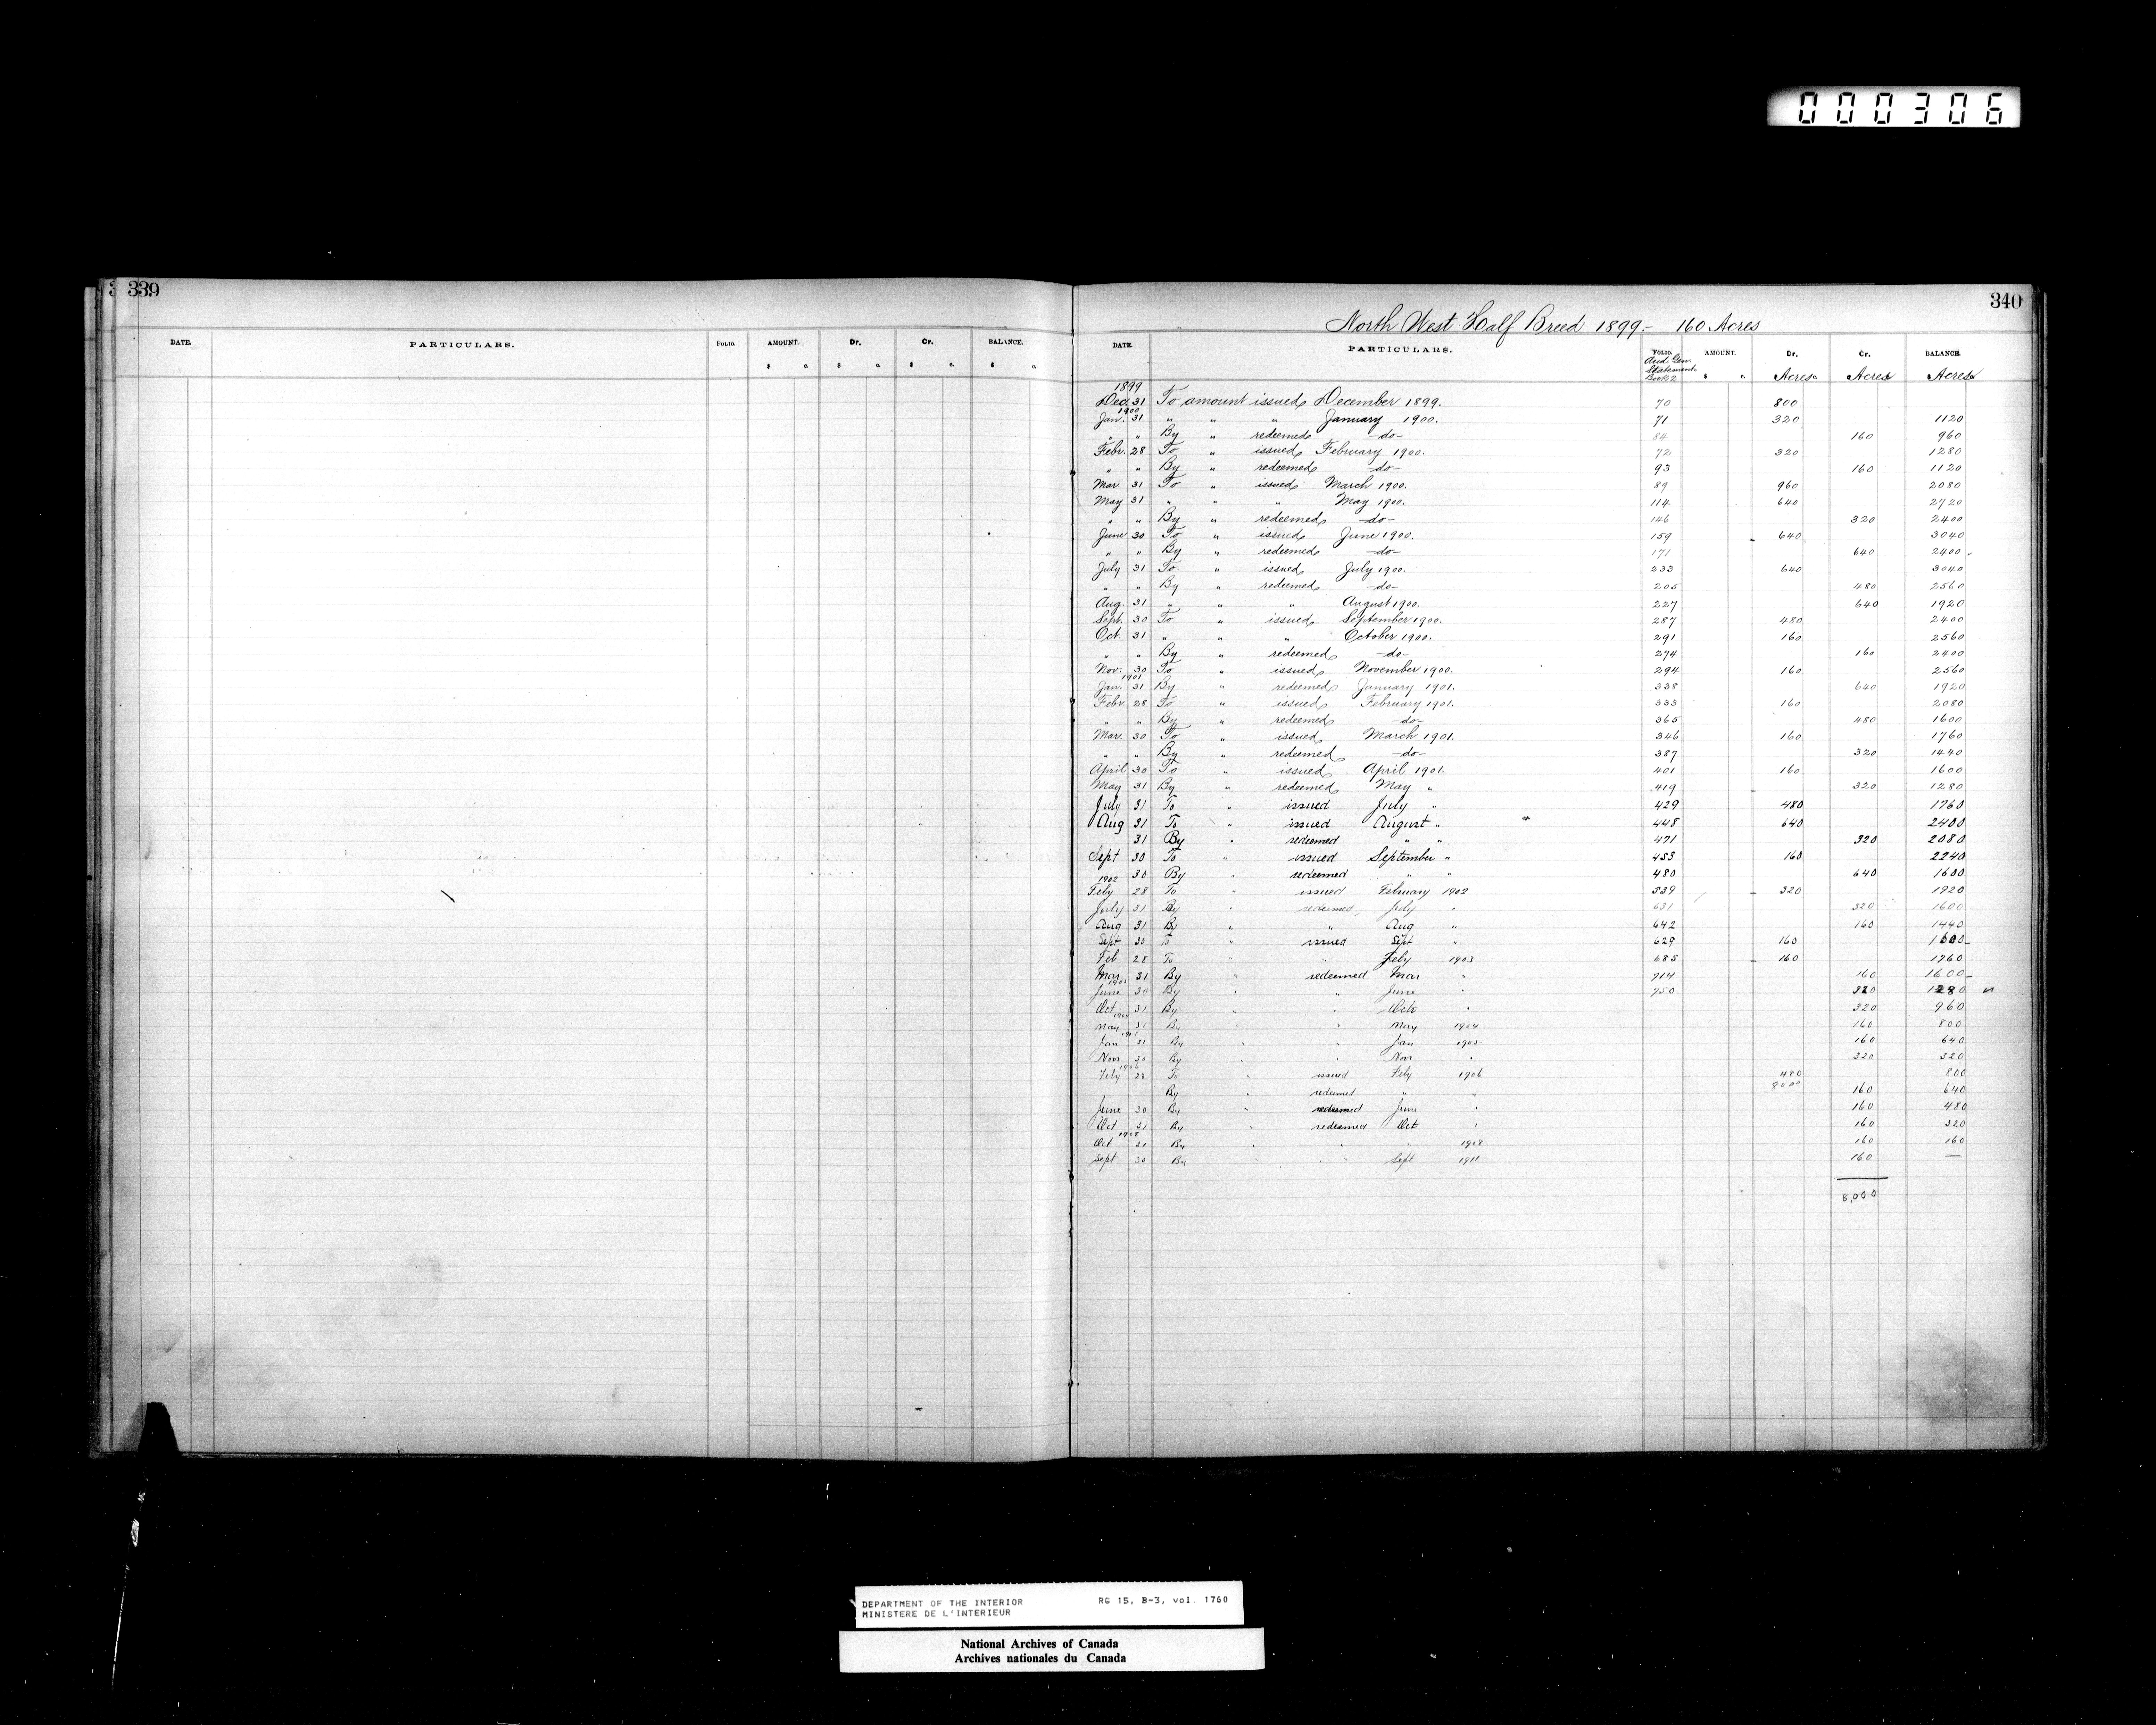 000306
339
DATE. PARTICULARS. FOLIO. AMOUNT. Dr. Cr. BALANCE.
$ c. $ c. $ c. $ c.
340
North West Half Breed 1899.- 160 Acres
DATE. PARTICULARS. FOLIO. AMOUNT. Dr. Cr. BALANCE.
Aud. Gen. Statement Book 2 $ c. Acres Acres Acres
1899
Dec. 31 To amount issued December 1899. 70 800
1900
Jan. 31 " " " January 1900. 71 320 1120
" " By " redeemed -do- 84 160 960
Febr. 28 To " issued February 1900. 72 320 1280
" " By " redeemed -do- 93 160 1120
Mar. 31 To " issued March 1900. 89 960 2080
May 31 " " " May 1900. 114 640 2720
" " By " redeemed -do- 146 320 2400
June 30 To " issued June 1900. 159 640 3040
" " By " redeemed -do- 171 640 2400
July 31 To " issued July 1900. 233 640 3040
" " By " redeemed -do- 205 480 2560
Aug. 31 " " " August 1900. 227 640 1920
Sept. 30 To " issued September 1900. 287 480 2400
Oct. 31 " " " October 1900. 291 160 2560
" " By " redeemed -do- 274 160 2400
Nov. 30 To " issued November 1900. 294 160 2560
1901
Jan. 31 By " redeemed January 1901. 338 640 1920
Febr. 28 To " issued February 1901. 333 160 2080
" " By " redeemed -do- 365 480 1600
Mar. 30 To " issued March 1901. 346 160 1760
" " By " redeemed -do- 387 320 1440
April 30 To " issued April 1901. 401 160 1600
May 31 By " redeemed May " 419 320 1280
July 31 To " issued July " 429 480 1760
Aug 31 To " issued August " 448 640 2400
31 By " redeemed " " 471 320 2080
Sept 30 To " issued September " 453 160 2240
30 By " redeemed " " 480 640 1600
1902
Feby 28 To " issued February 1902 539 320 1920
July 31 By " redeemed July " 631 320 1600
Aug 31 By " " Aug " 642 160 1440
Sept 30 To " issued Sept " 629 160 1600
Feb 28 To " " Feby 1903 685 160 1760
Mar 31 By " redeemed Mar " 714 160 1600
1903
June 30 By " " June " 750 320 1280
Oct 31 By " " Octr " 320 960
1904
May 31 By " " May 1904 160 800
1905
Jan 31 By " " Jan 1905 160 640
Novr 30 By " " Novr " 320 320
1906
Feby 28 To " issued Feby 1906 480 800
8000
By " redeemed " " 160 640
June 30 By " redeemed June " 160 480
Oct 31 By " redeemed Oct " 160 320
1908
Oct 31 By " " " 1908 160 160
Sept 30 By " " Sept 1911 160 —
8,000
DEPARTMENT OF THE INTERIOR RG 15, B-3, vol. 1760
MINISTERE DE L'INTERIEUR
National Archives of Canada
Archives nationales du Canada